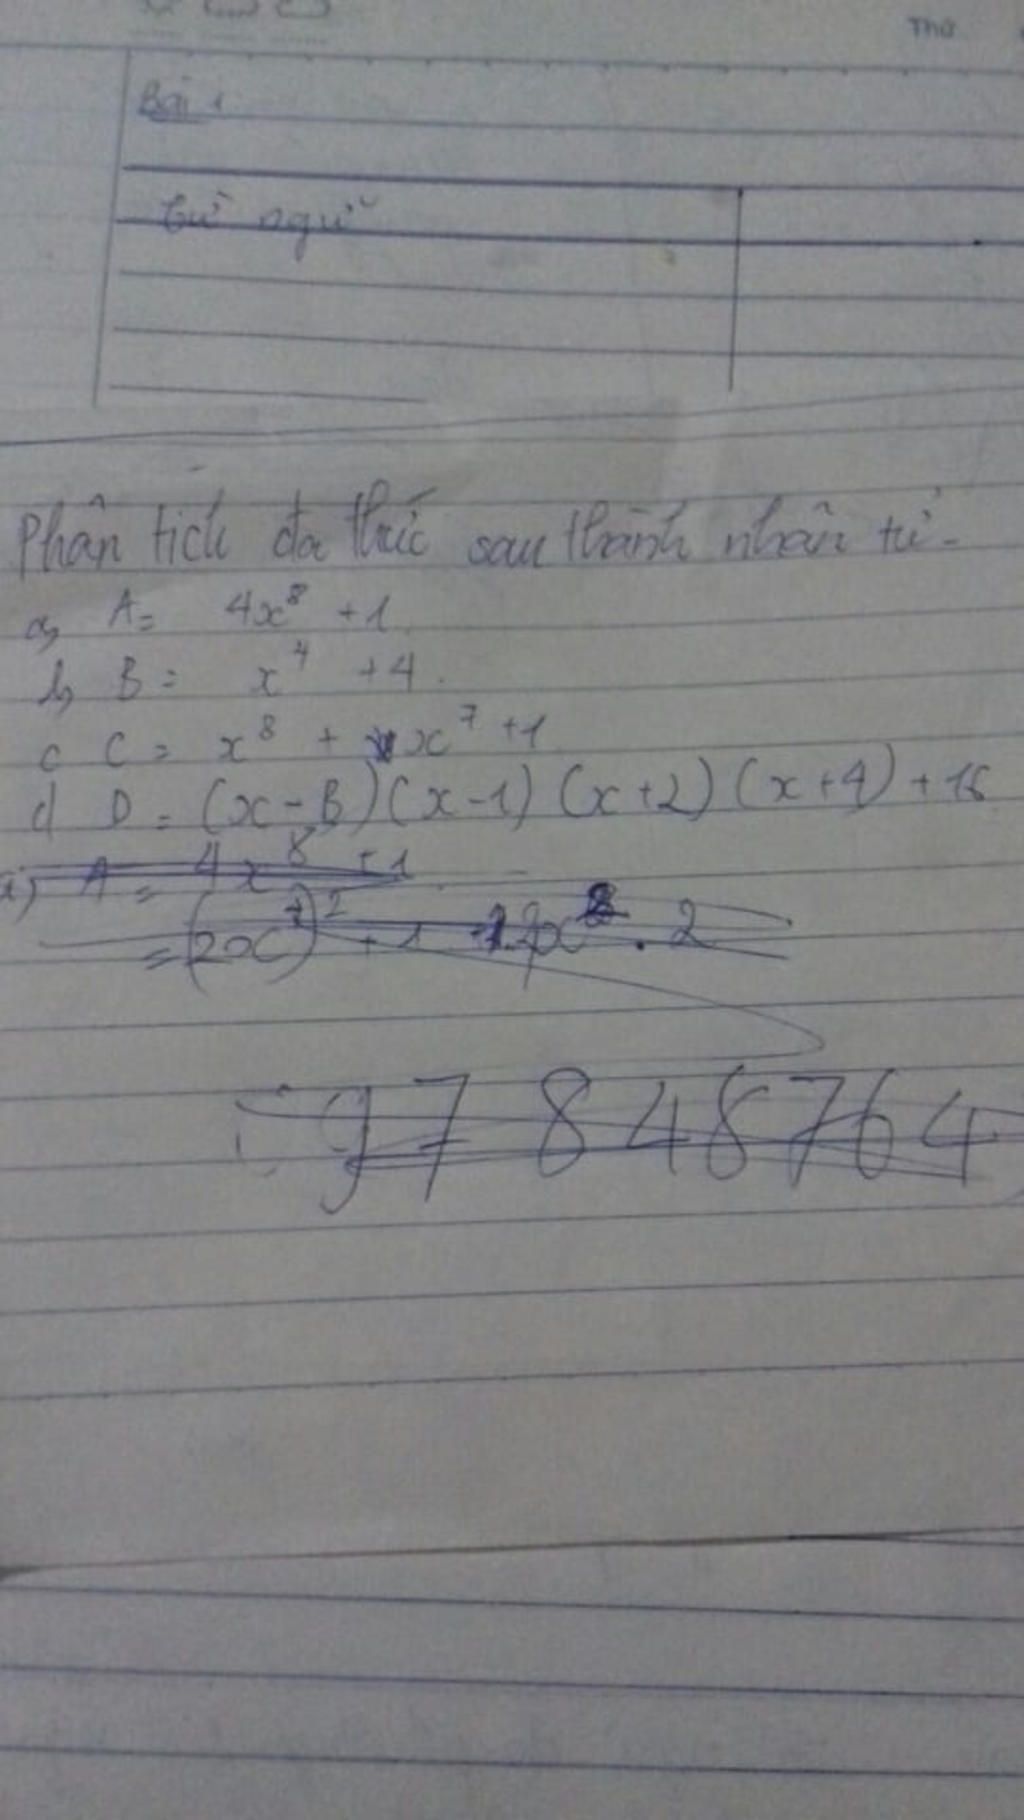 Thứ
Bài 1
từ ngữ
Phân tích đa thức sau thành nhân tử.
a, A = 4x⁸ + 1
b, B = x⁴ + 4.
c C = x⁸ + x⁷ + 1
d D = (x - B)(x - 1)(x + 2)(x + 4) + 16
A = 4x⁸ + 1
97 848764